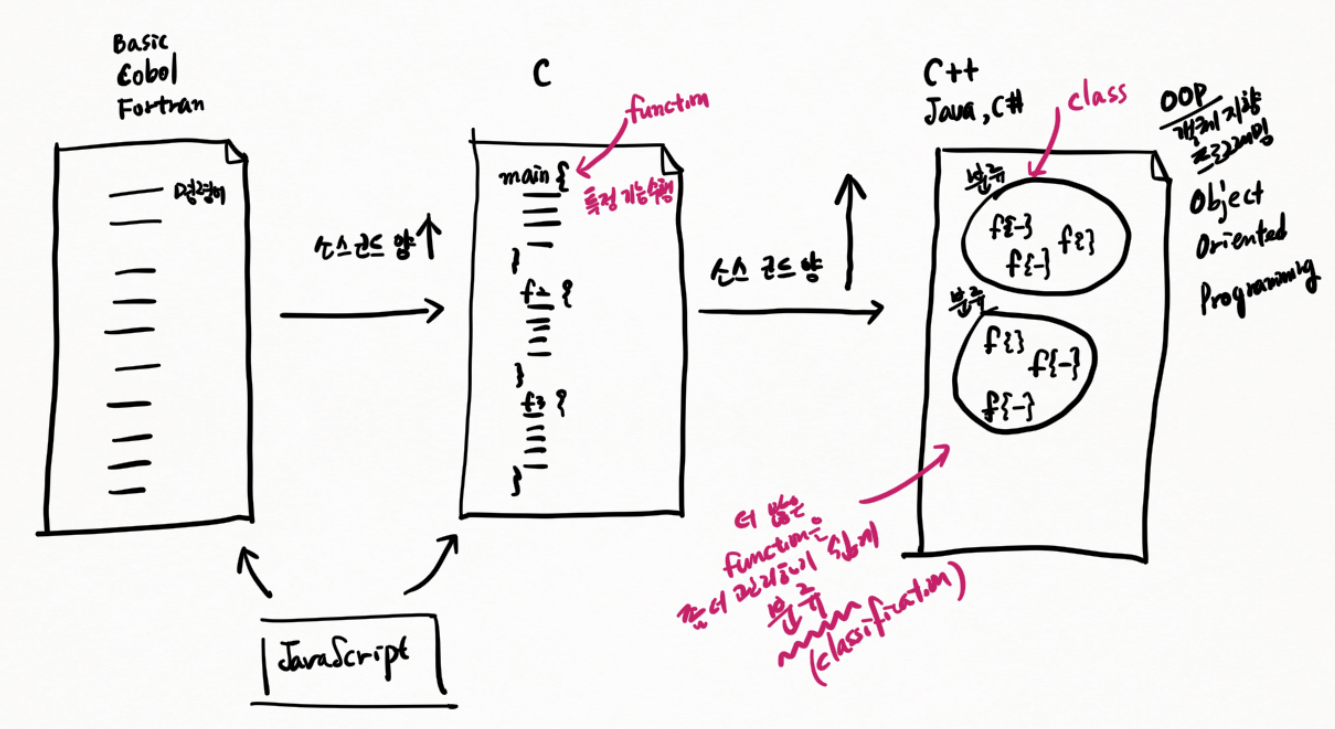 Basic
Cobol
Fortran
명령어
소스코드 양
JavaScript
C
function
main {
특정 기능수행
}
f2 {
}
f3 {
}
소스 코드 양
C++
Java, C#
class
분류
f{-}
f{}
f{-}
분류
f{}
f{-}
f{-}
OOP
객체 지향
프로그래밍
Object
Oriented
Programming
더 많은
function을
좀 더 관리하기 쉽게
분류
(classification)